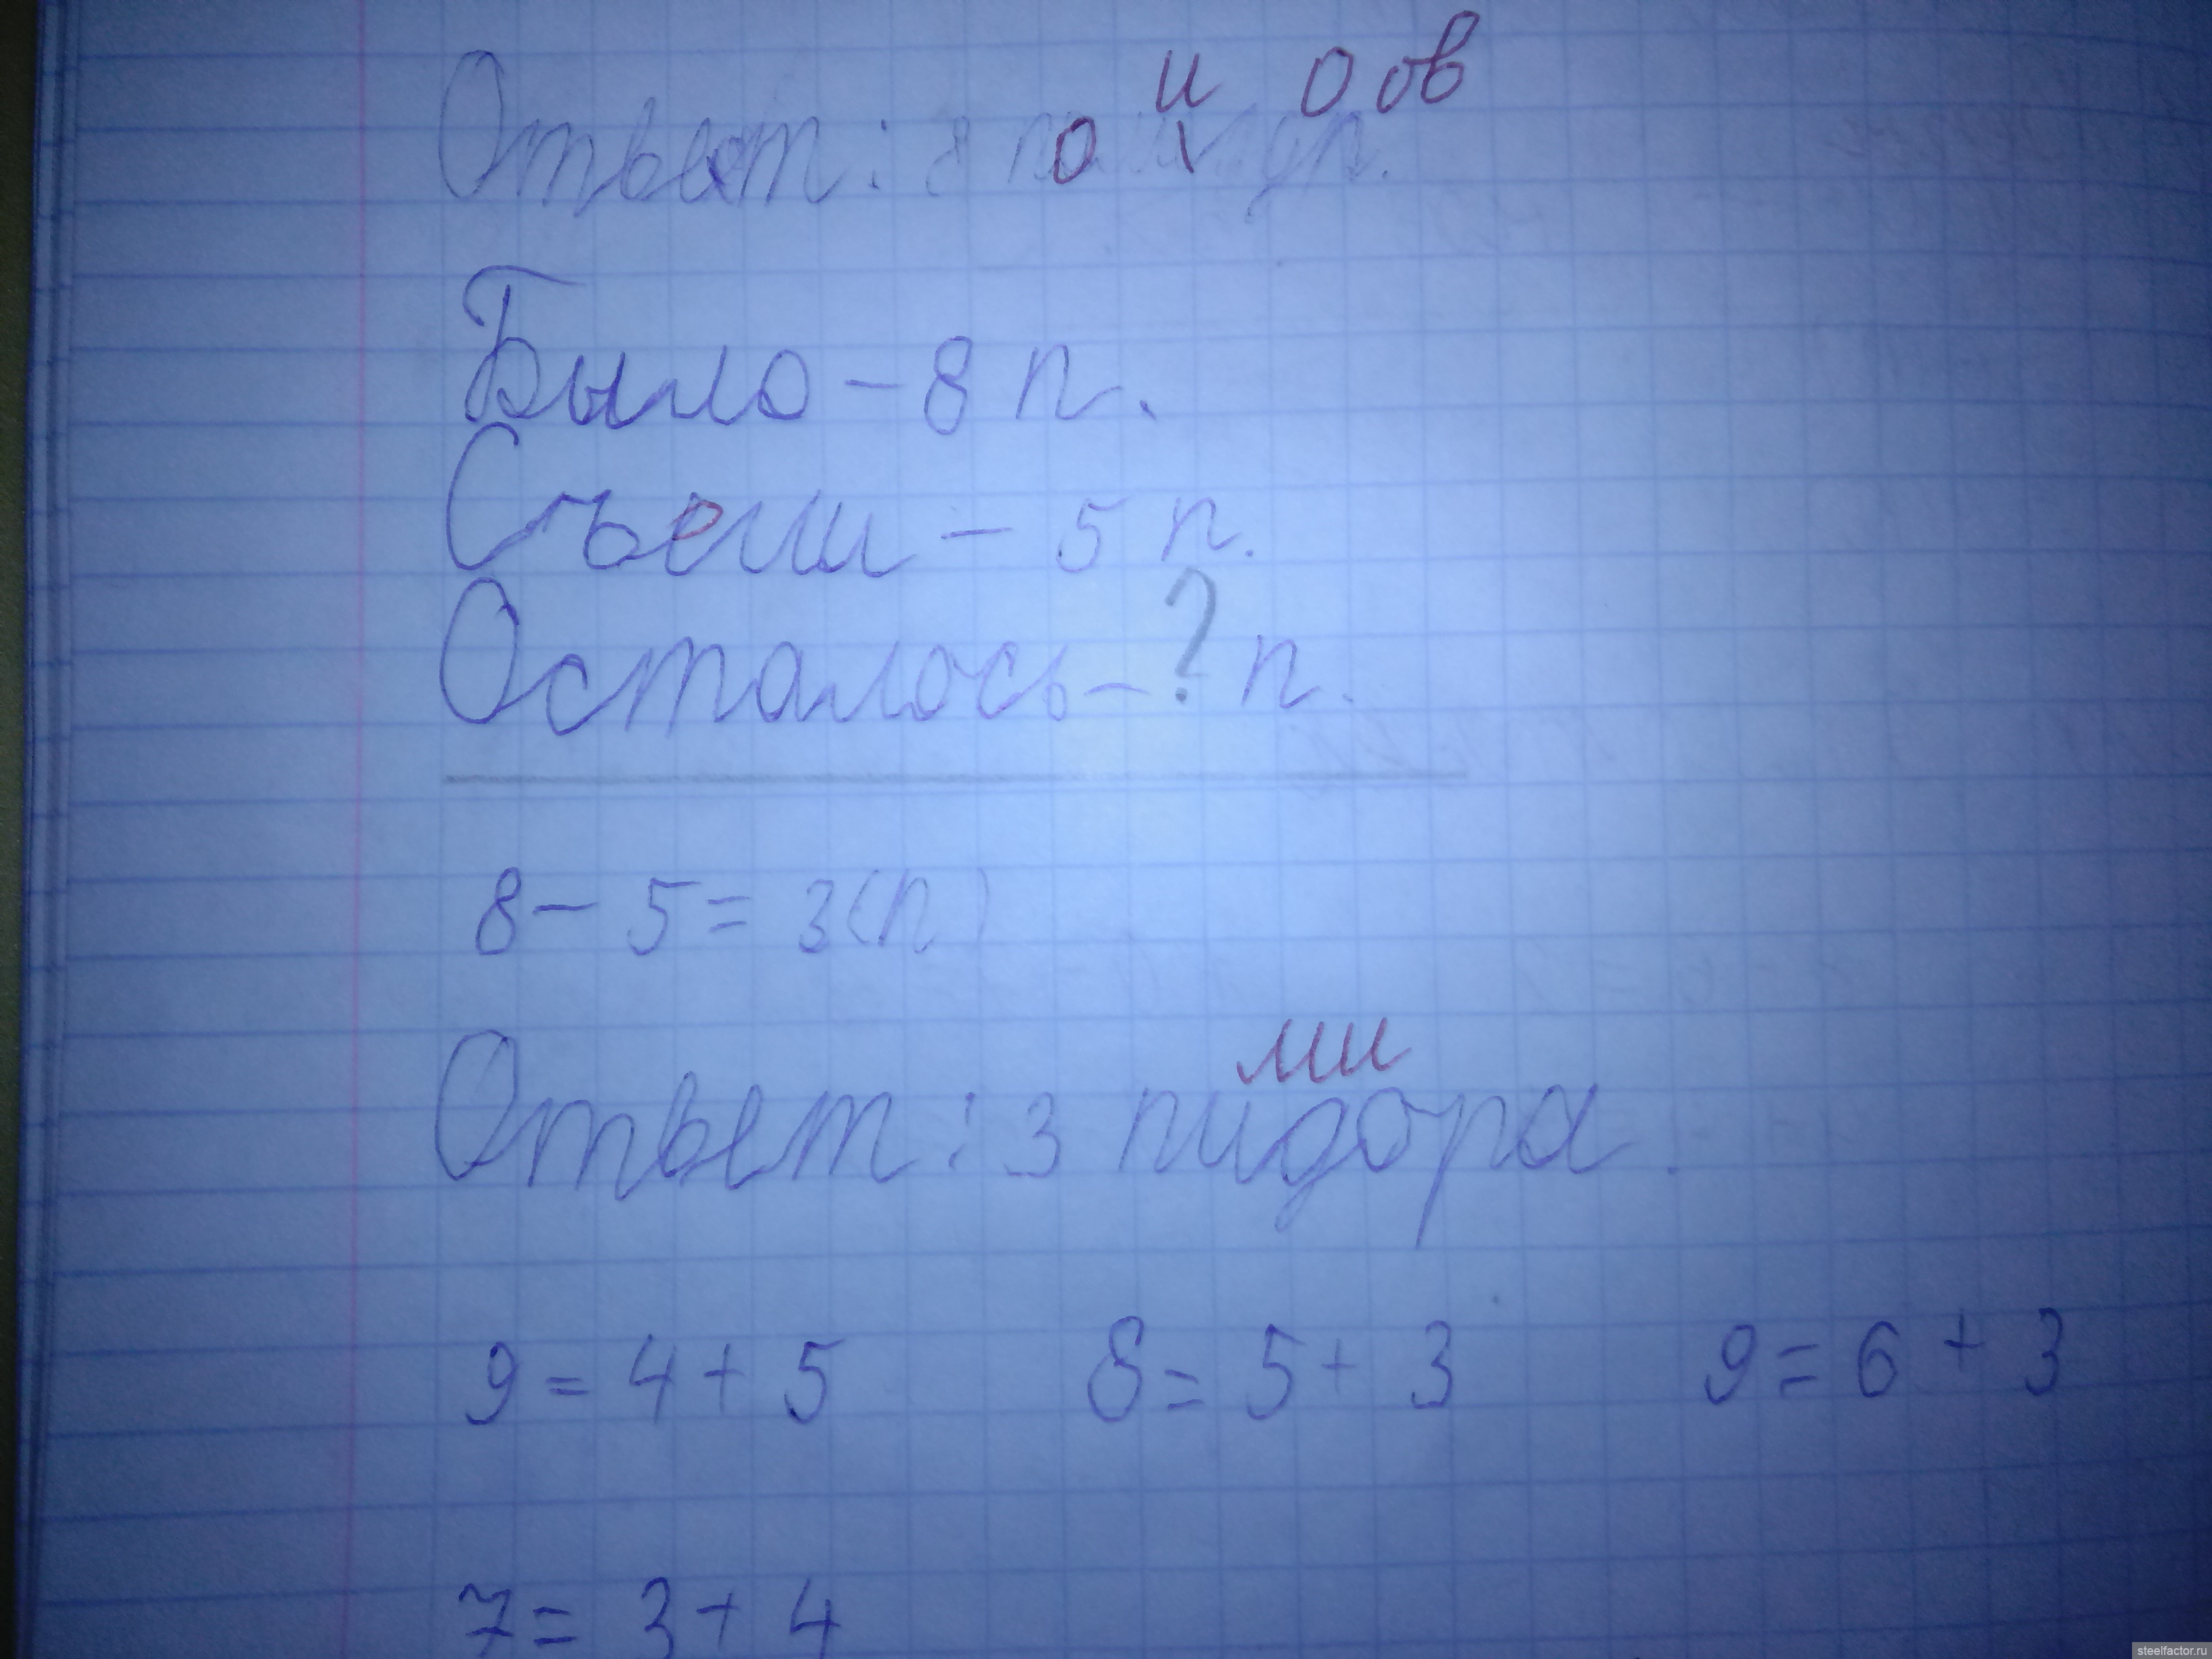 и о ов
Ответ: 8 по
Было - 8 п.
Съели - 5 п.
Осталось - ? п.
8 - 5 = 3 (п)
ми
Ответ: 3 пидора.
9 = 4 + 5 8 = 5 + 3 9 = 6 + 3
7 = 3 + 4
steelfactor.ru